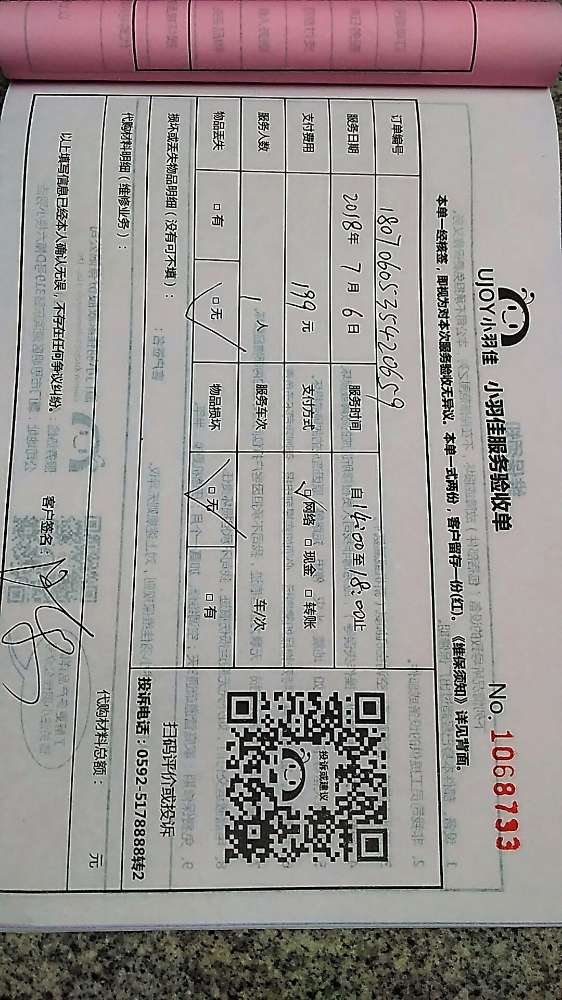 UJOY小羽佳 小羽佳服务验收单
No. 1068733
本单一经接签，即视为对本次服务验收无异议。本单一式两份，客户留存一份(红)。《维保须知》详见背面。
订单编号 1807060535420659
服务日期 2018年 7 月 6 日 服务时间 自 14:00 至 8:00 止
支付费用 199 元 支付方式 ☑网络 □现金 □转账
服务人数 1 人 服务车次 车/次
物品丢失 □有 ☑无 物品损坏 ☑无 □有
投诉或建议
损坏或丢失物品明细（没有可不填）：
扫码评价或投诉
投诉电话：0592-5178888转2
代购材料明细（维修业务）：
代购材料总额： 元
以上填写信息已经本人确认无误，不存在任何争议纠纷。
客户签名：